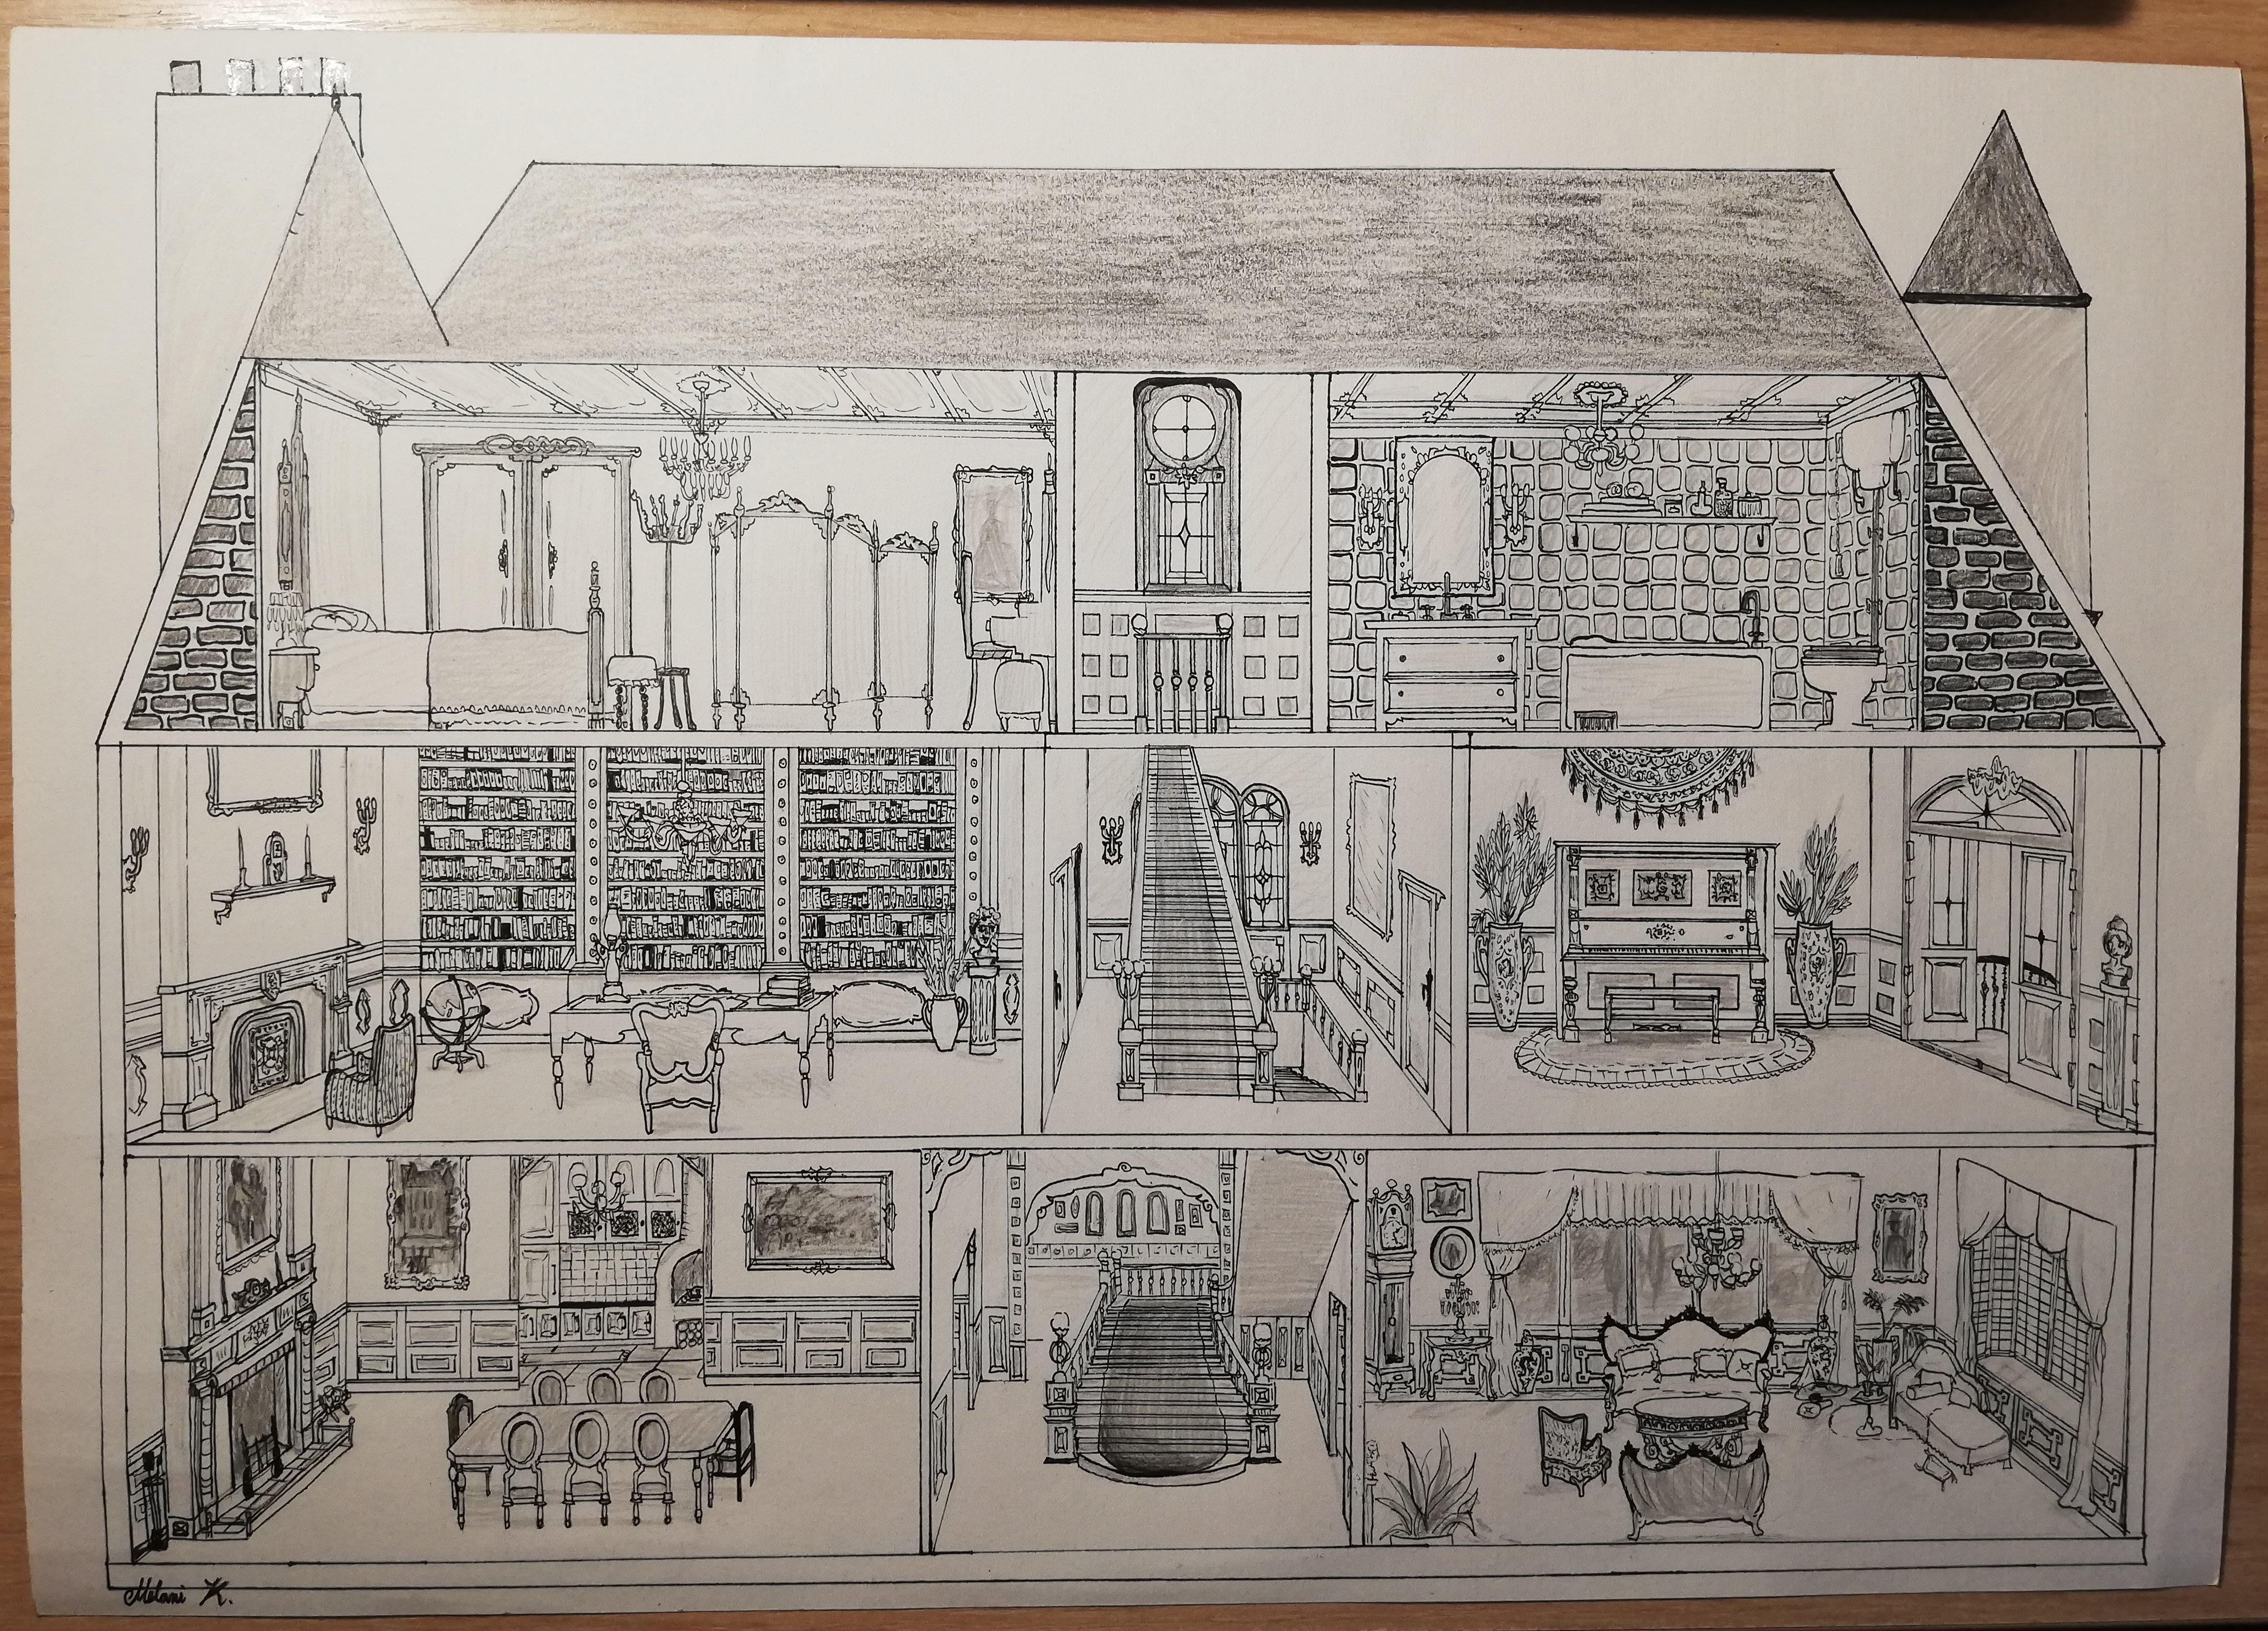 Melani K.